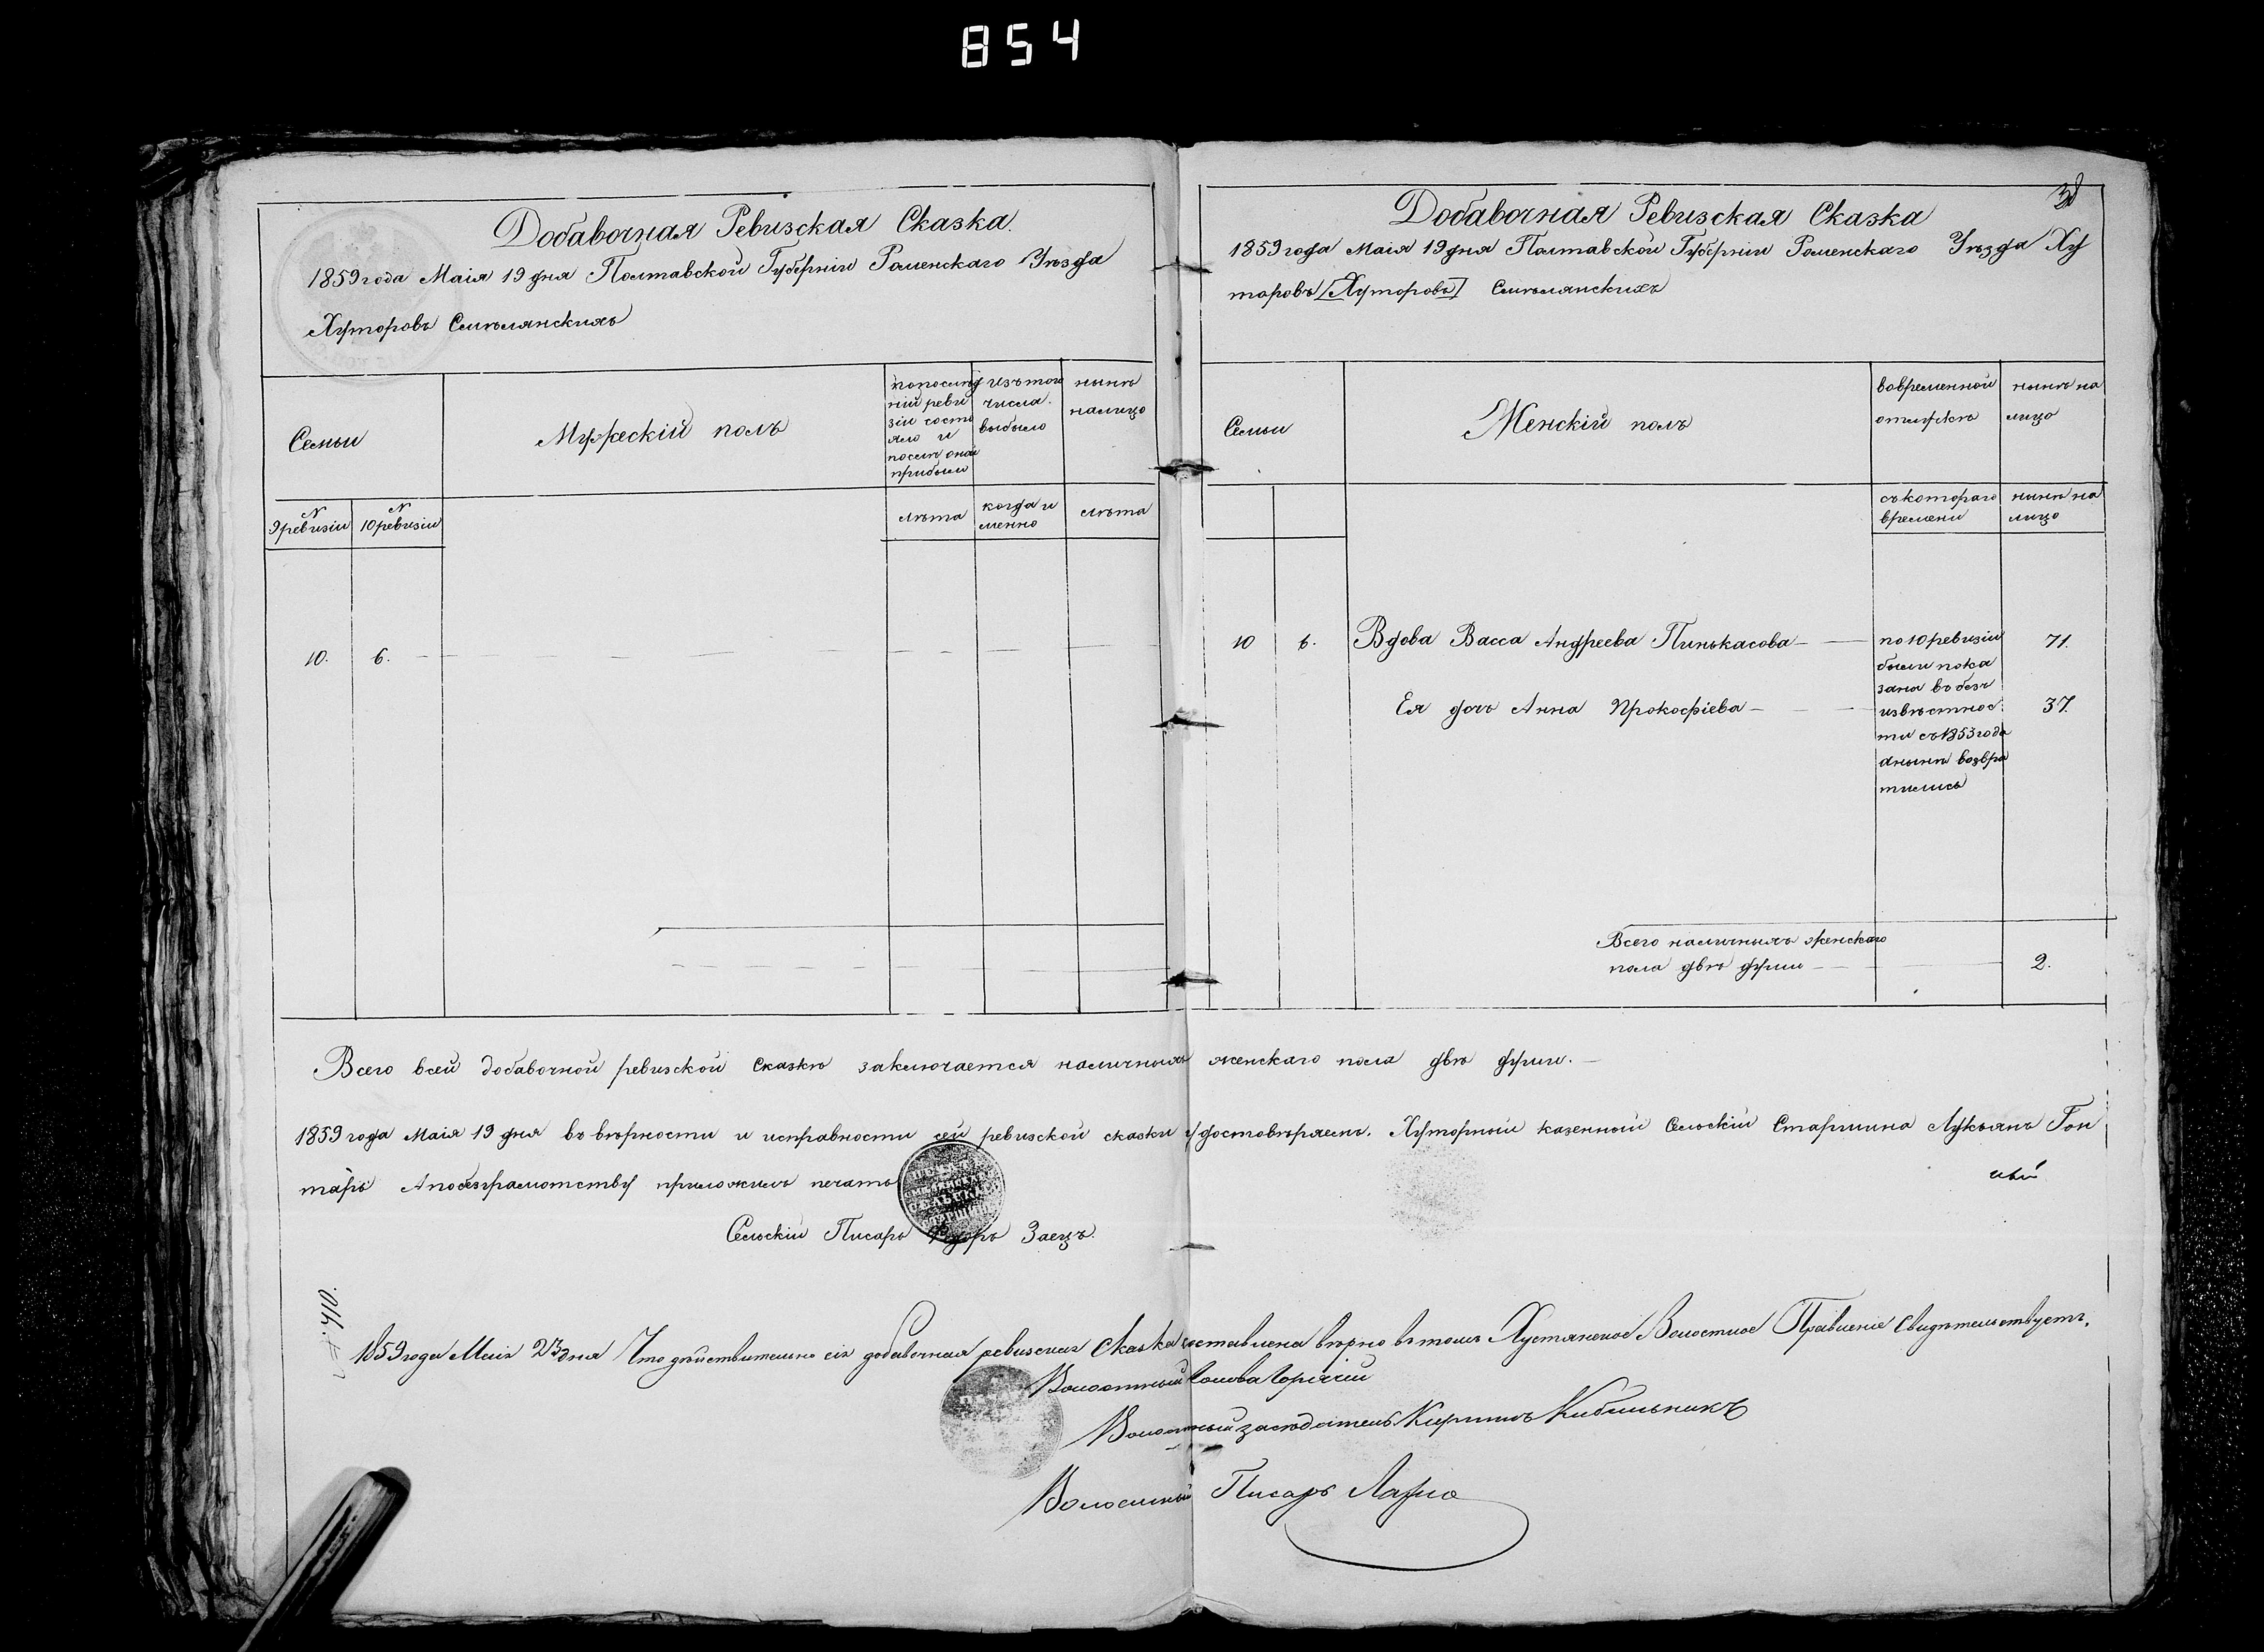 854
38
Добавочная Ревизская Сказка.
1859 года Маія 19 дня Полтавской Губерніи Роменскаго Уѣзда
Хуторовъ Смѣлянскихъ
Семьи
Мужескій полъ
по послѣд
ній реви
зіи состо
яло и
послѣ оной
прибыли
изъ того
числа
выбыло
нынѣ
налицо
N
9 ревизіи
N
10 ревизіи
лѣта
когда и
менно
лѣта
10.
6.
Добавочная Ревизская Сказка
1859 года Маія 19 дня Полтавской Губерніи Роменскаго Уѣзда Ху
торовъ [Хуторовъ] Смѣлянскихъ
Семьи
Женскій полъ
во временной
отлучкѣ
нынѣ на
лицо
съ котораго
времени
нынѣ на
лицо
10 6. Вдова Васса Андреева Пинькасова 71.
Ея дочь Анна Прокофіева 37.
по 10 ревизіи
были пока
зана въ безъ
извѣстнос
ти съ 1853 года
а нынѣ возвра
тились
Всего наличныхъ женскаго
пола двѣ души 2.
Всего всей добавочной ревизской сказкѣ заключается наличныхъ женскаго пола двѣ души.
1859 года Маія 19 дня въ вѣрности и исправности сей ревизской сказки удостовѣряемъ. Хуторный казенный Сельскій Старшина Лукьянъ Гон
таръ А по безграмотству приложилъ печать
Сельскій Писарь Федоръ Заецъ.
410.
1859 года Маія 23 дня Что дѣйствительно сія добавочная ревизская Сказка составлена вѣрно въ томъ Хустянское Волостное Правленіе Свидѣтельствуетъ.
Волостный Голова
Волостный засѣдатель Кирилъ Кибальникъ
Волостный Писарь